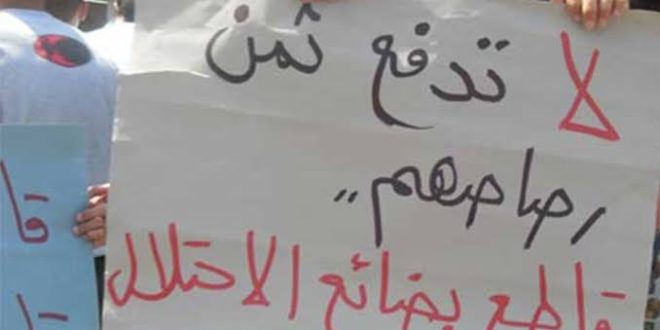 لا تدفع ثمن
رصاصهم ,,
قاطع بضائع الاحتلال
قا